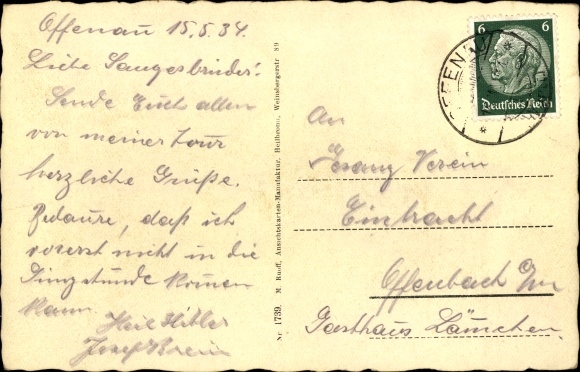 Offenau 15.5.34.
Liebe Sangesbrüder!
Sende Euch allen
von meiner Tour
herzliche Grüße.
Bedaure, daß ich
vorerst nicht in die
Singstunde kommen
kann.
Heil Hitler
Josef
Nr. 1739. M. Ruoff, Ansichtskarten-Manufaktur, Heilbronn, Weinsbergerstr 89
6 6
Deutsches Reich
OFFENAU
An
Gesang Verein
Eintracht
Offenbach a/M
Gasthaus Lämchen.